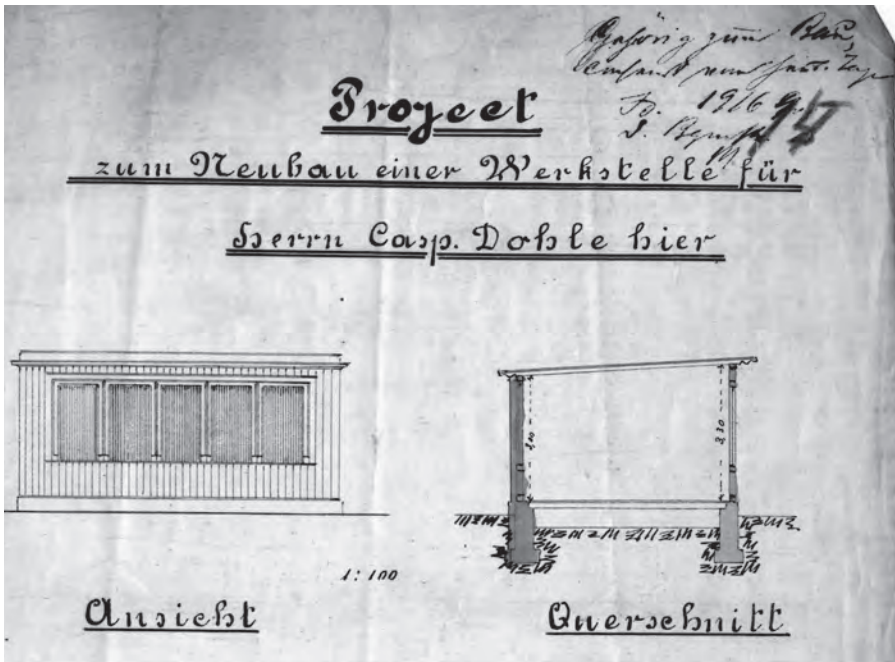 Gehörig zum Bau,
vom
1916
Project
zum Neubau einer Werkstelle für
Herrn Casp. Dohle hier
3,30
1:100
Ansicht
Querschnitt